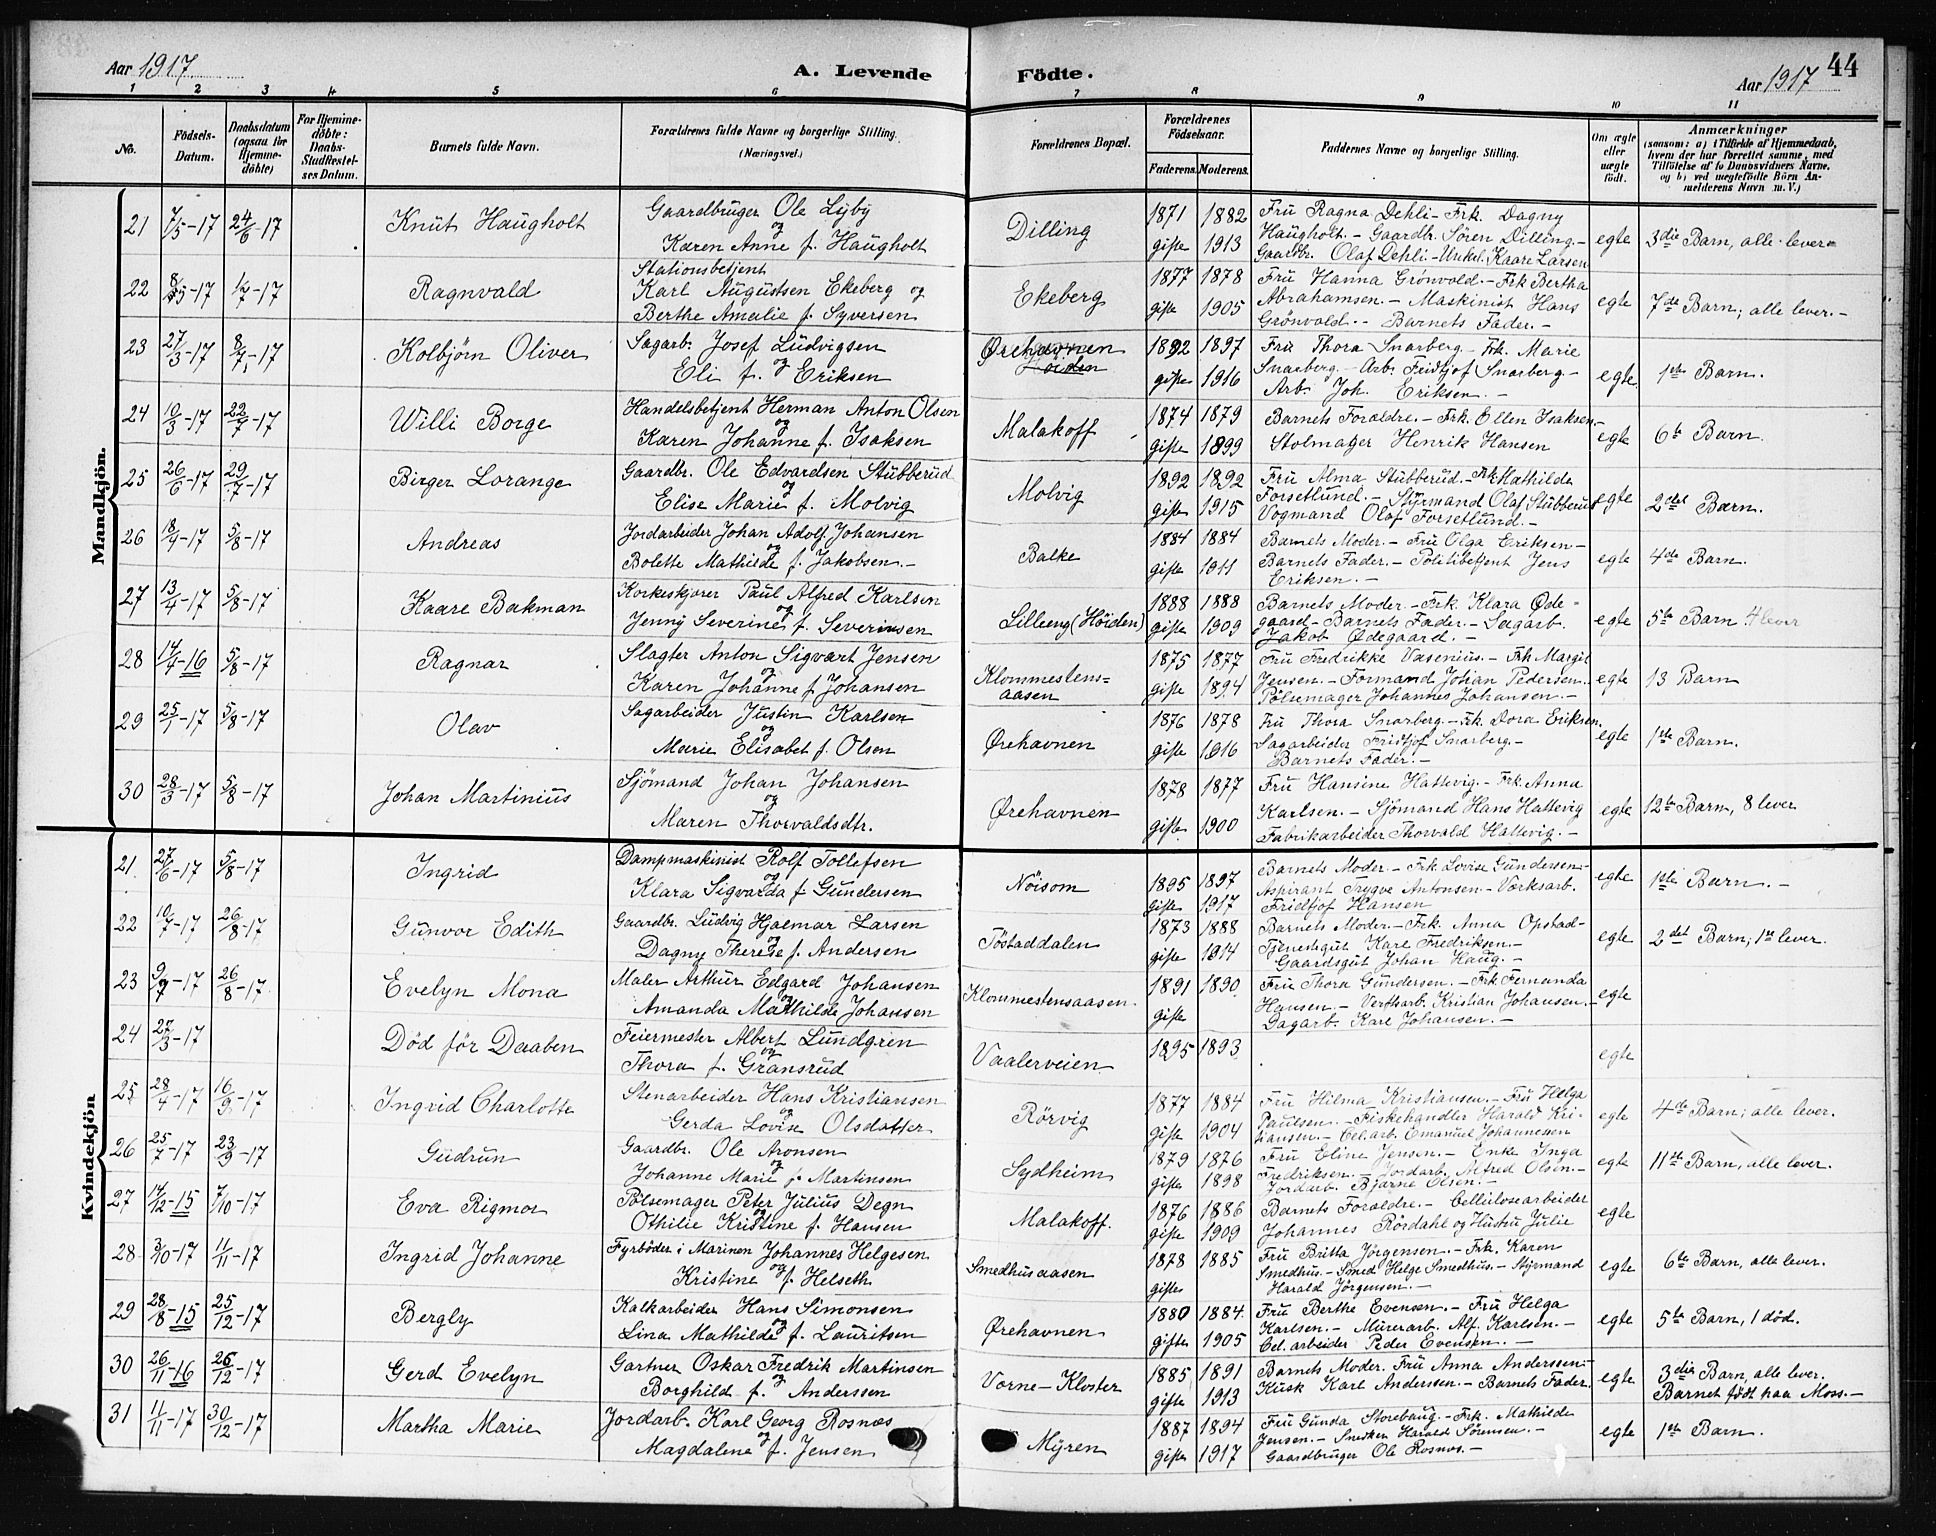 Aar 1917
A. Levende
Födte.
Aar 1917
44
1 2 3 4 5 6 7 8 9 10 11
No.
Födsels-
Datum.
Daabsdatum
(ogsaa for
Hjemme-
döbte)
For Hjemme-
döbte:
Daabs-
Stadfæstel-
ses Datum.
Barnets fulde Navn.
Forældrenes fulde Navne og borgerlige Stilling.
(Næringsvei.)
Forældrenes Bopæl.
Forældrenes
Födselsaar.
Faderens. Moderens.
Faddernes Navne og borgerlige Stilling.
Om ægte
eller
uægte
födt.
Anmærkninger
(saasom: a) i Tilfælde af Hjemmedaab,
hvem der har forrettet samme, med
Tilföielse af to Daabsvidners Navne.
og b) ved uægtefödte Börn An-
melderens Navn m. V.)
Mandkjön.
21 7/5-17 24/6-17 Knut Haugholt
Gaardbruger Ole Lyby
og
Karen Anne f. Haugholt
Dilling
1871 1882
gifte 1913
Fru Ragna Dehli - Frk. Dagny
Haugholt. - Gaardbr. Sören Dilling. -
Gaardbr. Olaf Dehli - Kaare Larsen
egte
3die Barn, alle lever
22 8/5-17 1/7-17 Ragnvald
Stationsbetjent
Karl Augustsen Ekeberg og
Berthe Amalie f. Syversen
Ekeberg
1877 1878
gifte 1905
Fru Hanna Grönvold - Frk Bertha
Abrahamsen. - Maskinist Hans
Grönvold. - Barnets Fader. -
egte
7de Barn; alle lever. -
23 27/3-17 8/7-17 Kolbjörn Oliver
Sagarb. Josef Ludvigsen
og
Eli f. Eriksen
Ørehavnen
Höiden
1892 1897
gifte 1916
Fru Thora Snarberg - Frk. Marie
Snarberg. - Arb. Fridtjof Snarberg -
Arb. Joh. Eriksen. -
egte.
1ste Barn.
24 10/3-17 22/7-17 Willi Borge
Handelsbetjent Herman Anton Olsen
og
Karen Johanne f. Isaksen
Malakoff
1874 1879
gifte 1899
Barnets Forældre. - Frk. Ellen Isaksen -
Stolmager Henrik Hansen
egte
6te Barn.
25 26/6-17 29/7-17 Birger Lorange
Gaardbr. Ole Edvardsen Stubberud
og
Elise Marie f. Molvig
Molvig
1892 1892
gifte 1915
Fru Alma Stubberud. - Frk Mathilde
Forsetlund. - Styrmand Olaf Stubberud
Vogmand Olaf Forsetlund. -
egte
2det Barn.
26 18/4-17 5/8-17 Andreas
Jordarbeider Johan Adolf Johansen
og
Bolette Mathilde f. Jakobsen. -
Balke
1884 1884
gifte 1911
Barnets Moder. - Fru Olga Eriksen -
Barnets Fader. - Politibetjent Jens
Eriksen. -
egte
4de Barn.
27 13/4-17 5/8-17 Kaare Bakman
Korkeskjærer Paul Alfred Karlsen
og
Jenny Severine f. Severinsen
Lilleeng (Höiden)
1888 1888
gifte 1909
Barnets Moder. - Frk. Klara Øde-
gaard - Barnets Fader - Sagarb.
Jakob Ødegaard. -
egte
5te Barn 4 lever
28 14/4-16 5/8-17 Ragnar
Slagter Anton Sigvart Jensen
og
Karen Johanne f. Johansen
Klommestens-
aasen
1875 1877
gifte 1894
Fru Fredrikke Vasenius. - Frk Margit
Jensen. - Formand Johan Pedersen. -
Pölsemager Johannes Johansen. -
egte
13 Barn
29 25/1-17 5/8-17 Olav
Sagarbeider Justin Karlsen
og
Marie Elisabet f. Olsen
Ørehavnen
1876 1878
gifte 1916
Fru Thora Snarberg. - Frk. Dora Eriksen.
Sagarbeider Fridtjof Snarberg. -
Barnets Fader. -
egte
1ste Barn.
30 28/3-17 5/8-17 Johan Martinius
Sjömand Johan Johansen
og
Maren Thorvaldsdtr.
Ørehavnen
1878 1877
gifte 1900
Fru Hansine Hattevig. - Frk. Anna
Karlsen. - Sjömand Hans Hattevig
Fabrikarbeider Thorvald Hattevig. -
egte
12te Barn, 8 lever
Kvindekjön
21 27/6-17 5/8-17 Ingrid
Dampmaskinist Rolf Tollefsen
og
Klara Sigvarda f. Gundersen
Nöisom
1895 1897
gifte 1917
Barnets Moder. - Frk. Lovise Gundersen -
Aspirant Trygve Antonsen - Værksarb.
Fridtjof Hansen
egte
1ste Barn. -
22 10/7-17 26/8-17 Gunvor Edith
Gaardbr. Ludvig Hjalmar Larsen
og
Dagny Therese f. Andersen
Töstaddalen
1873 1888
gifte 1914
Barnets Moder. - Frk. Anna Opstad -
Tjenestegut Karl Fredriksen. -
Gaardsgut Johan Haug. -
egte
2det Barn; 1 lever.
23 9/7-17 26/8-17. Evelyn Mona
Maler Arthur Edgard Johansen
og
Amanda Mathilde Johansen
Klommestensaasen.
1891 1890
gifte
Fru Thora Gundersen. - Frk Fernanda
Hansen. - Verftsarb. Kristian Johansen. -
Dagarb. Karl Johansen. -
egte
24 27/3-17 Död för Daaben
Feiermester Albert Lundgren
og
Thora f. Gransrud
Vaalerveien
1895 1893
egte
25 28/4-17 16/9-17 Ingrid Charlotte
Stenarbeider Hans Kristiansen
og
Gerda Lovise Olsdatter
Rörvig
1877 1884
gifte 1904
Fru Hilma Kristiansen. - Fru Helga
Paulsen. - Fiskehandler Harald Kri-
stiansen. - Cel.arb. Emanuel Johannesen
egte
4de Barn; alle lever.
26 25/7-17 23/9-17 Gudrun
Gaardbr. Ole Aronsen
og
Johanne Marie f. Martinsen
Sydheim
1879 1876
gifte 1898
Fru Eline Jensen. - Enke Inga
Fredriksen. - Jordarb. Alfred Olsen. -
Jordarb. Bjarne Olsen. -
egte
11te Barn, alle lever.
27 14/12-15 7/10-17 Eva Rigmor
Pölsemager Peter Julius Degn
og
Othilie Kristine f. Hansen
Malakoff.
1876 1886
gifte 1909
Barnets Forældre. - Cellulosearbeider
Johannes Rördahl og Hustru Julie
egte
28 3/10-17 11/11-17 Ingrid Johanne
Fyrböder i Marinen Johannes Helgesen
og
Kristine f. Helseth
Smedhusaasen
1878 1885
gifte
Fru Britta Jörgensen. - Frk. Karen
Smedhus. - Smed Helge Smedhus. - Styrmand
Harald Jörgensen. -
egte
6te Barn, alle lever.
29 28/8-15 25/12-17 Bergly
Kalkarbeider Hans Simonsen
og
Lina Mathilde f. Lauritsen
Ørehavnen
1880 1884
gifte 1905
Fru Berthe Evensen. - Fru Helga
Karlsen. - Murerarb. Alf. Karlsen. -
Cel. arbeider Peder Evensen. -
egte
5te Barn, 1 död.
30 26/11-16 26/12-17 Gerd Evelyn
Gartner Oskar Fredrik Martinsen
og
Borghild f. Anderssen
Vorne-Kloster
1885 1891
gifte 1913
Barnets Moder. Fru Anna Anderssen -
Kusk Karl Anderssen. - Barnets Fader.
egte
3die Barn, alle lever.
Barnet födt paa Moss. -
31 11/11-17 30/12-17 Martha Marie
Jordarb. Karl Georg Rosnæs
og
Magdalene f. Jensen
Myren
1887 1894
gifte 1917
Fru Gunda Storebaug. - Frk. Mathilde
Jensen. - Snedker Harald Sörensen. -
Gaardbruger Ole Rosnæs. -
egte
1ste Barn.